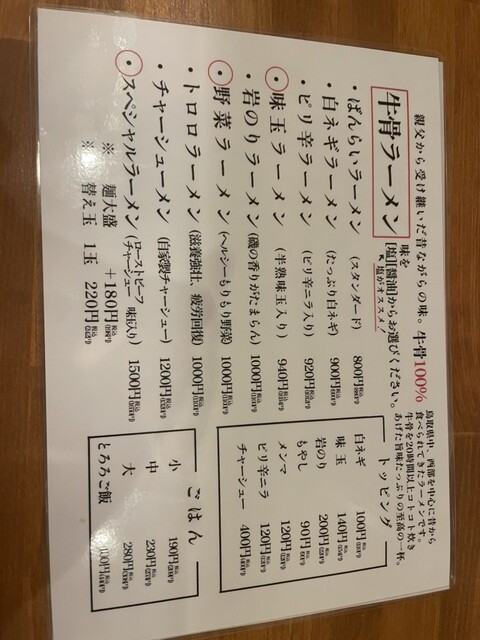 親父から受け継いだ昔ながらの味。牛骨100%
牛骨ラーメン
味を
[塩][醤油]からお選びください。
塩がオススメ!
鳥取県中、西部を中心に昔から
食べられてきたラーメンです。
牛骨を20時間以上コトコト炊き
あげた旨味たっぷりの至高の一杯。
・ばんらいラーメン (スタンダード) 800円
・白ネギラーメン (たっぷり白ネギ) 900円
・ピリ辛ラーメン (ピリ辛ニラ入り) 920円
・味玉ラーメン (半熟味玉入り) 940円
・岩のりラーメン (磯の香りがたまらん) 1000円
・野菜ラーメン (ヘルシーもりもり野菜) 1000円
・トロロラーメン (滋養強壮、疲労回復) 1000円
・チャーシューメン (自家製チャーシュー) 1200円
・スペシャルラーメン (ローストビーフ チャーシュー 味玉入り) 1500円
※ 麺大盛 +180円
※ 替え玉 1玉 220円
トッピング
白ネギ 100円
味玉 140円
岩のり 200円
もやし 90円
メンマ 120円
ピリ辛ニラ 120円
チャーシュー 400円
ごはん
小 190円
中 230円
大 280円
とろろご飯